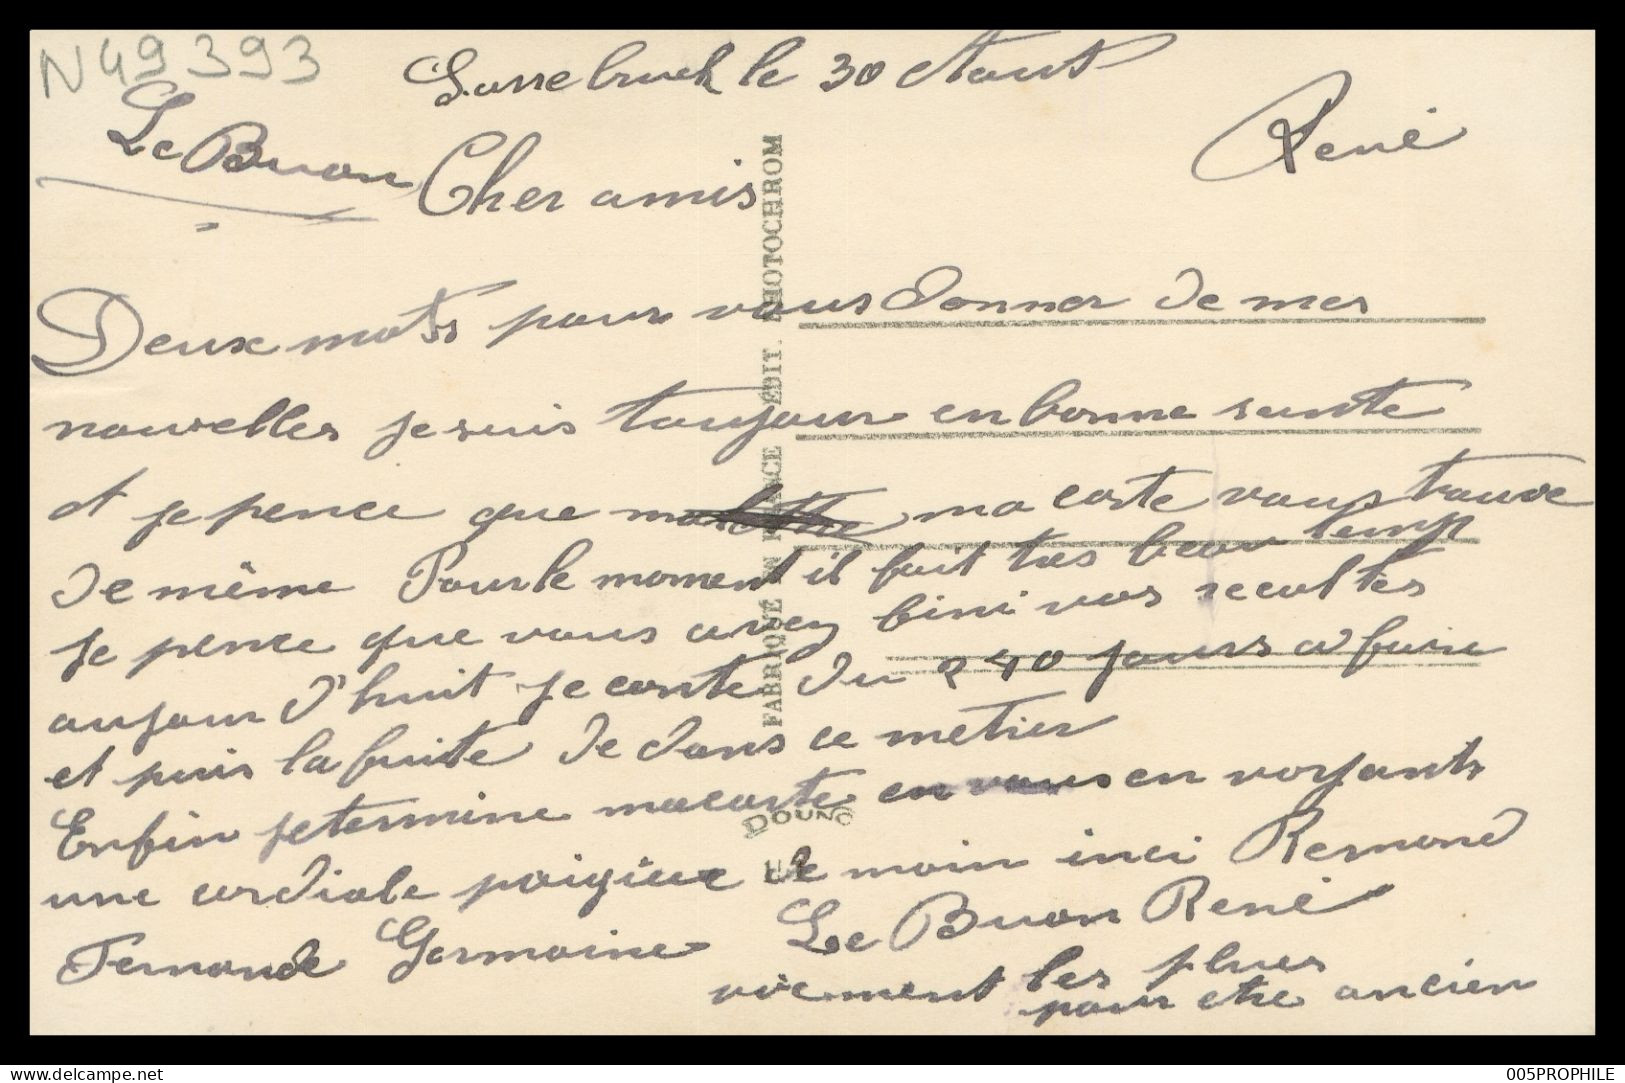 N49393
Sarrebruck le 30 Aout
René
Le Buon
Cher amis
Deux mots pour vous donner de mes
nouvelles je suis toujour en bonne sante
et je pence que ma carte vous trouve
de même Pour le moment il fait tres beau temp
je pence que vous avez bini vos recoltes
aujour d'huit je conte du 240 jours a faire
et puis la fuite de dans ce metier
Enfin je termine ma carte en vous en voyant
une cordiale poigiee de main inci Remond
Fernande Germaine Le Buon René
vivement les plues
pour etre ancien
FABRIQUÉ EN FRANCE ÉDIT. PHOTOCHROM
www.delcampe.net
005PROPHILE